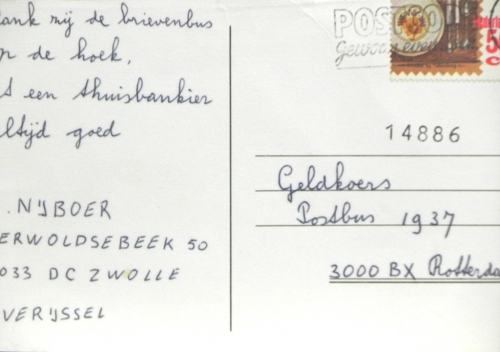 ank zij de brievenbus
op de hoek,
t een thuisbankier
altijd goed
. NIJBOER
ERWOLDSEBEEK 50
033 DC ZWOLLE
VERIJSSEL
POSTGIRO
Gewoon
14886
Geldkoers
Postbus 1937
3000 BX Rotterda